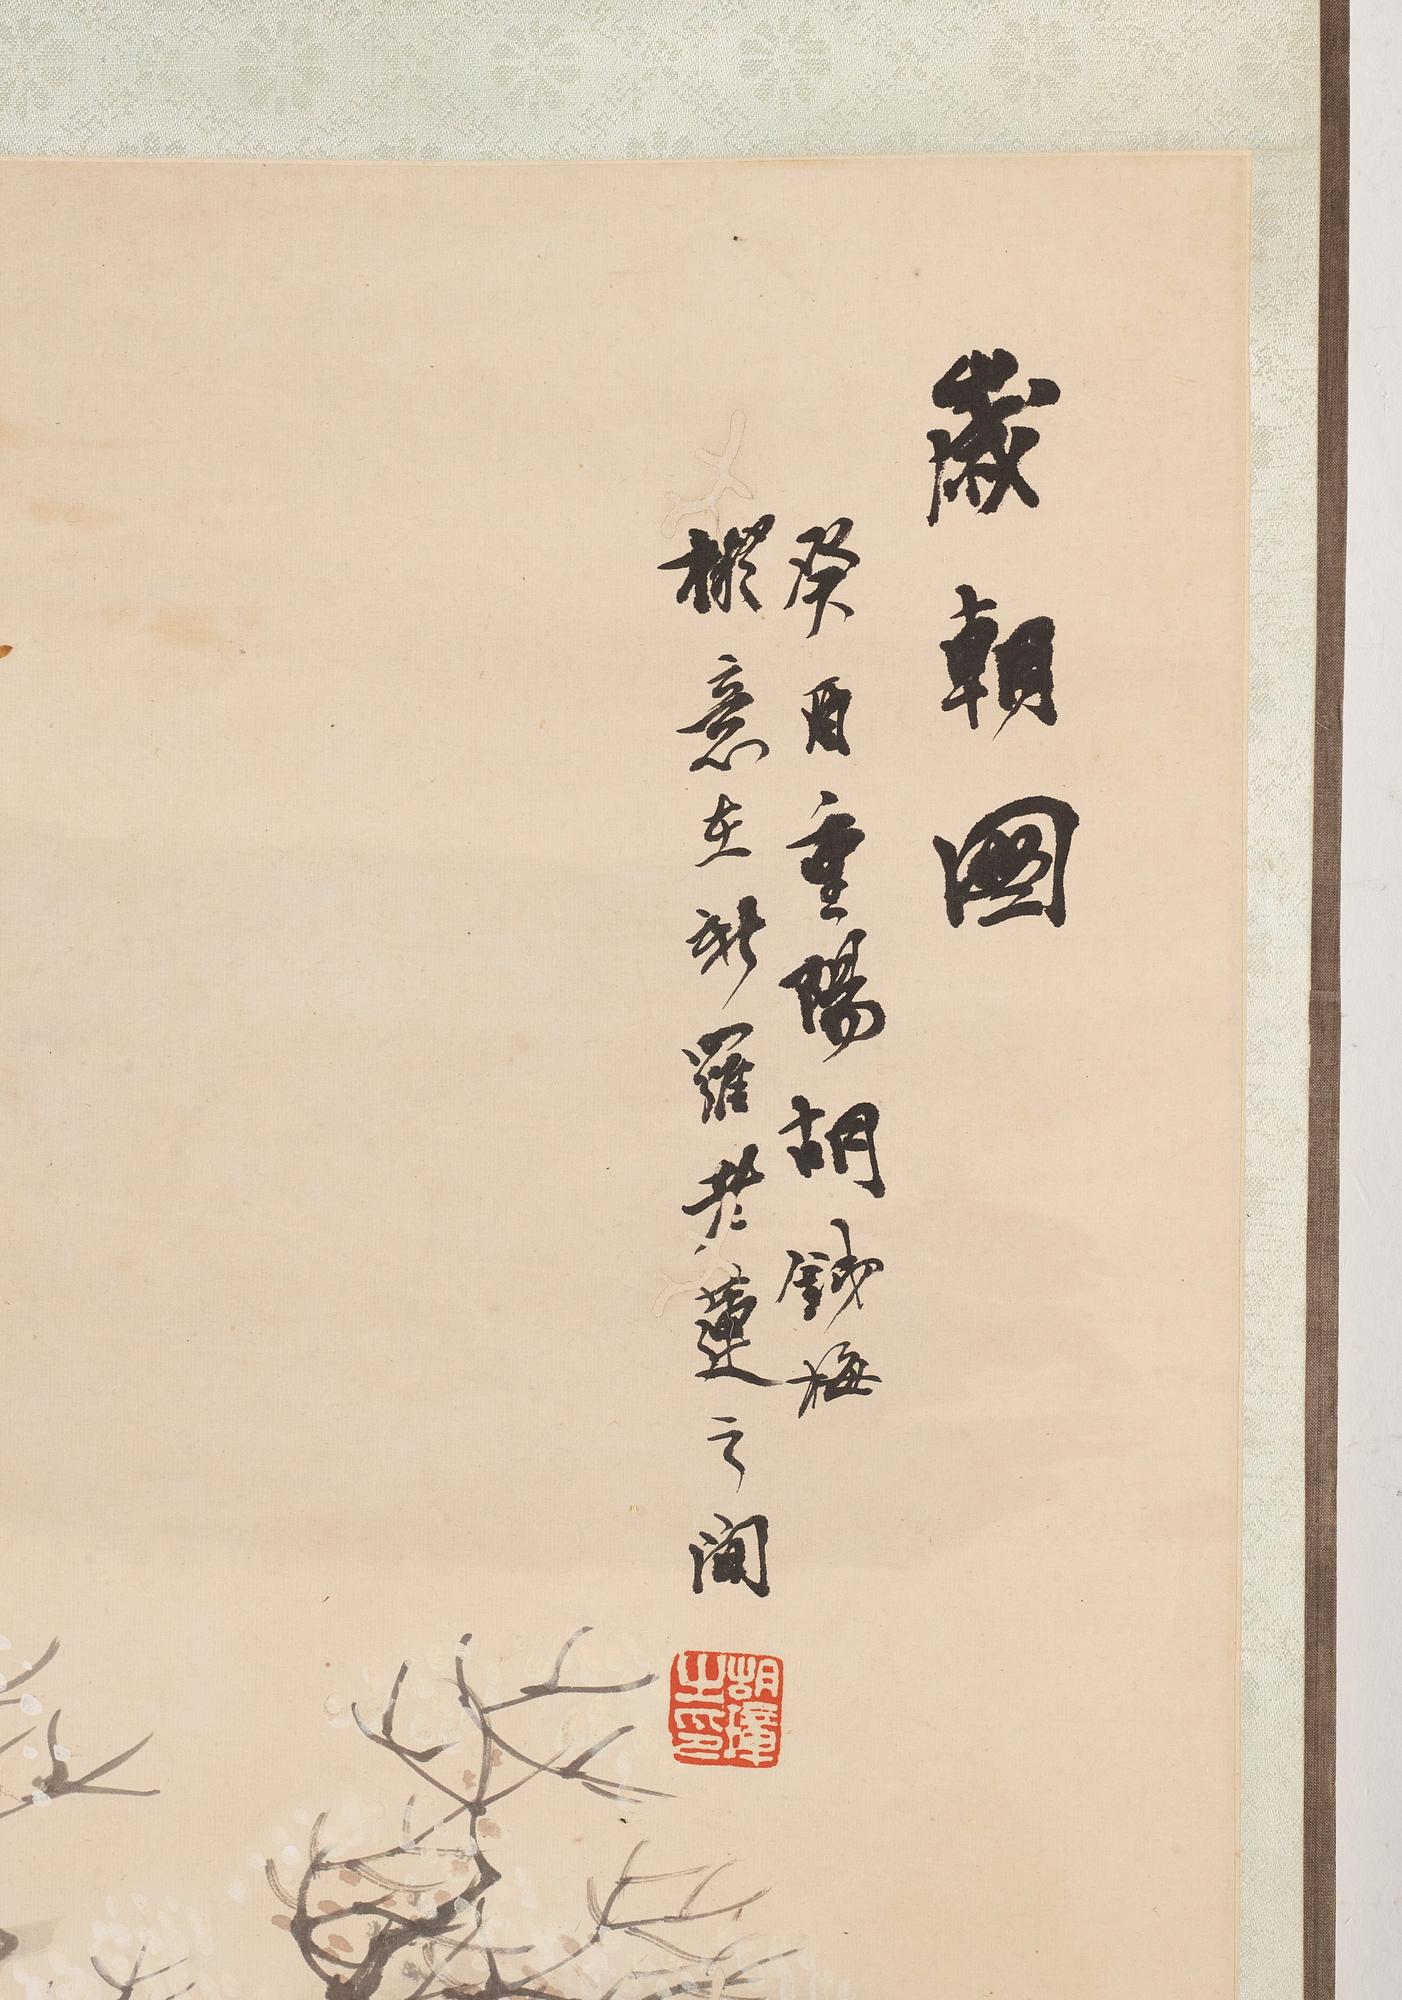 歲朝圖
癸酉重陽胡錢梅
擬意在新羅老蓮之間
胡璋之印